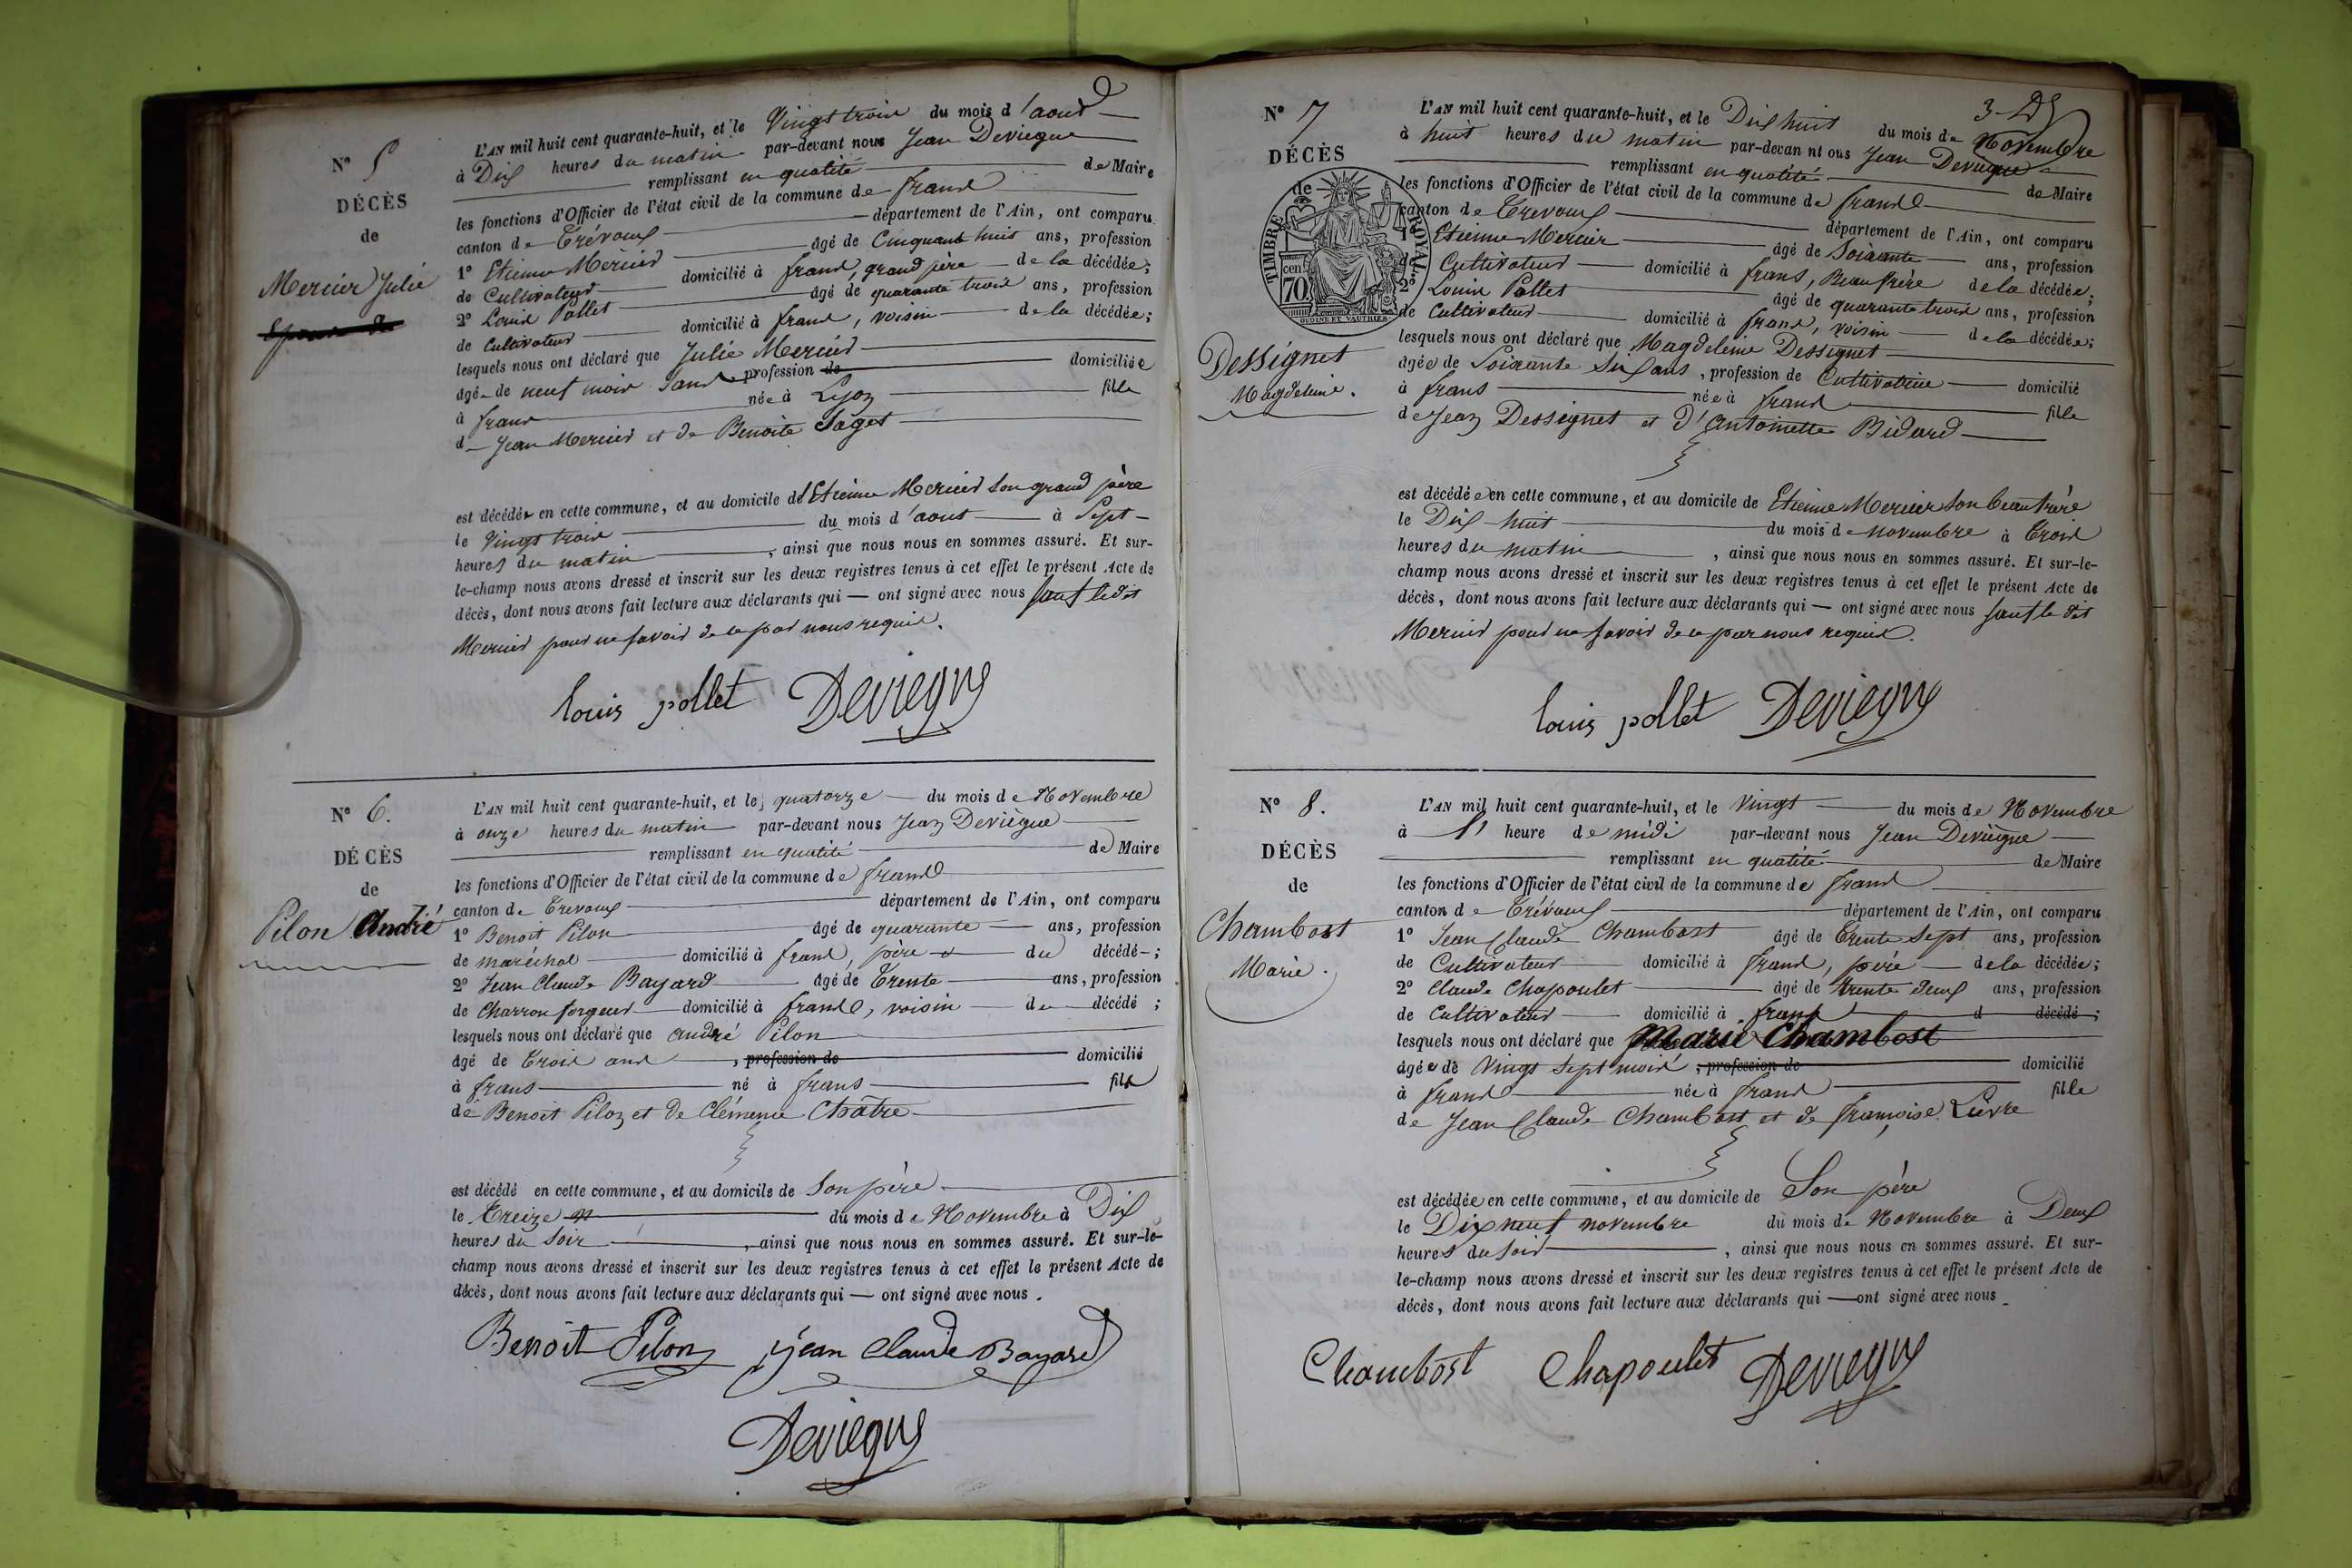 N° 5
DÉCÈS
de
Mercier Julie
L'AN mil huit cent quarante-huit, et le Vingt trois du mois d'aout
à Dix heures du matin par-devant nous Jean Deviegue
remplissant en qualité de Maire
les fonctions d'Officier de l'état civil de la commune de frans
canton de Trévoux département de l'Ain, ont comparu
1° Etienne Mercier âgé de Cinquante huit ans, profession
de Cultivateur domicilié à frans, grand père de la décédée;
2° Louis Pollet âgé de quarante trois ans, profession
de Cultivateur domicilié à frans, voisin de la décédée;
lesquels nous ont déclaré que Julie Mercier
âgée de neuf mois sans profession de domiciliée
à frans née à Lyon fille
d Jean Mercier et de Benoite Saget
est décédée en cette commune, et au domicile d'Etienne Mercier son grand père
le Vingt trois du mois d'aout à Sept
heures du matin, ainsi que nous nous en sommes assuré. Et sur-
le-champ nous avons dressé et inscrit sur les deux registres tenus à cet effet le présent Acte de
décès, dont nous avons fait lecture aux déclarants qui — ont signé avec nous sauf ledit
Mercier pour ne savoir de ce par nous requis.
louis pollet Deviegue
N° 6.
DÉCÈS
de
Pilon André
L'AN mil huit cent quarante-huit, et le quatorze du mois de Novembre
à onze heures du matin par-devant nous Jean Deviègue
remplissant en qualité de Maire
les fonctions d'Officier de l'état civil de la commune de frans
canton de Trevoux département de l'Ain, ont comparu
1° Benoit Pilon âgé de quarante ans, profession
de maréchal domicilié à frans, père du décédé;
2° Jean Claude Bayard âgé de Trente ans, profession
de Charron forgeur domicilié à frans, voisin du décédé;
lesquels nous ont déclaré que André Pilon
âgé de Trois ans, profession de domicilié
à frans né à frans fils
de Benoit Pilon et de Clémence Châtre
est décédé en cette commune, et au domicile de Son père
le Treize du mois de Novembre à Dix
heures du Soir, ainsi que nous nous en sommes assuré. Et sur-le-
champ nous avons dressé et inscrit sur les deux registres tenus à cet effet le présent Acte de
décès, dont nous avons fait lecture aux déclarants qui — ont signé avec nous.
Benoit Pilon jean Claude Bayard
Deviegue
3
N° 7
DÉCÈS
de
TIMBRE ROYAL
70 cent.
OUDINE ET VAUTHIER
Dessignet
Magdeleine.
L'AN mil huit cent quarante-huit, et le Dix huit du mois de Novembre
à huit heures du matin par-devan nt ous Jean Deviegue
remplissant en qualité de Maire
les fonctions d'Officier de l'état civil de la commune de frans
canton de Trevoux département de l'Ain, ont comparu
1° Etienne Mercier âgé de Soixante ans, profession
de Cultivateur domicilié à frans, Beau frère de la décédée;
2° Louis Pollet âgé de quarante trois ans, profession
de Cultivateur domicilié à frans, voisin de la décédée;
lesquels nous ont déclaré que Magdeleine Dessignet
âgée de Soixante Six ans, profession de Cultivatrice domicilié
à frans née à frans fille
de Jean Dessignet et d'Antoinette Bidard
est décédée en cette commune, et au domicile de Etienne Mercier son beau frère
le Dix-huit du mois de novembre à Trois
heures du matin, ainsi que nous nous en sommes assuré. Et sur-le-
champ nous avons dressé et inscrit sur les deux registres tenus à cet effet le présent Acte de
décès, dont nous avons fait lecture aux déclarants qui — ont signé avec nous sauf le dit
Mercier pour ne savoir de ce par nous requis.
louis pollet Deviegue
N° 8.
DÉCÈS
de
Chambost
Marie.
L'AN mil huit cent quarante-huit, et le Vingt du mois de Novembre
à 1 heure de midi par-devant nous Jean Deviègue
remplissant en qualité de Maire
les fonctions d'Officier de l'état civil de la commune de frans
canton de Trévoux département de l'Ain, ont comparu
1° Jean Claude Chambost âgé de Trente Sept ans, profession
de Cultivateur domicilié à frans, père de la décédée;
2° Claude Chapoulet âgé de trente deux ans, profession
de Cultivateur domicilié à frans d décédé;
lesquels nous ont déclaré que Marie Chambost
âgée de Vingt Sept mois, profession de domicilié
à frans née à frans fille
de Jean Claude Chambost et de françoise Lièvre
est décédée en cette commune, et au domicile de Son père
le Dix neuf novembre du mois de Novembre à Deux
heures du Soir, ainsi que nous nous en sommes assuré. Et sur-
le-champ nous avons dressé et inscrit sur les deux registres tenus à cet effet le présent Acte de
décès, dont nous avons fait lecture aux déclarants qui — ont signé avec nous
Chambost Chapoulet Deviegue